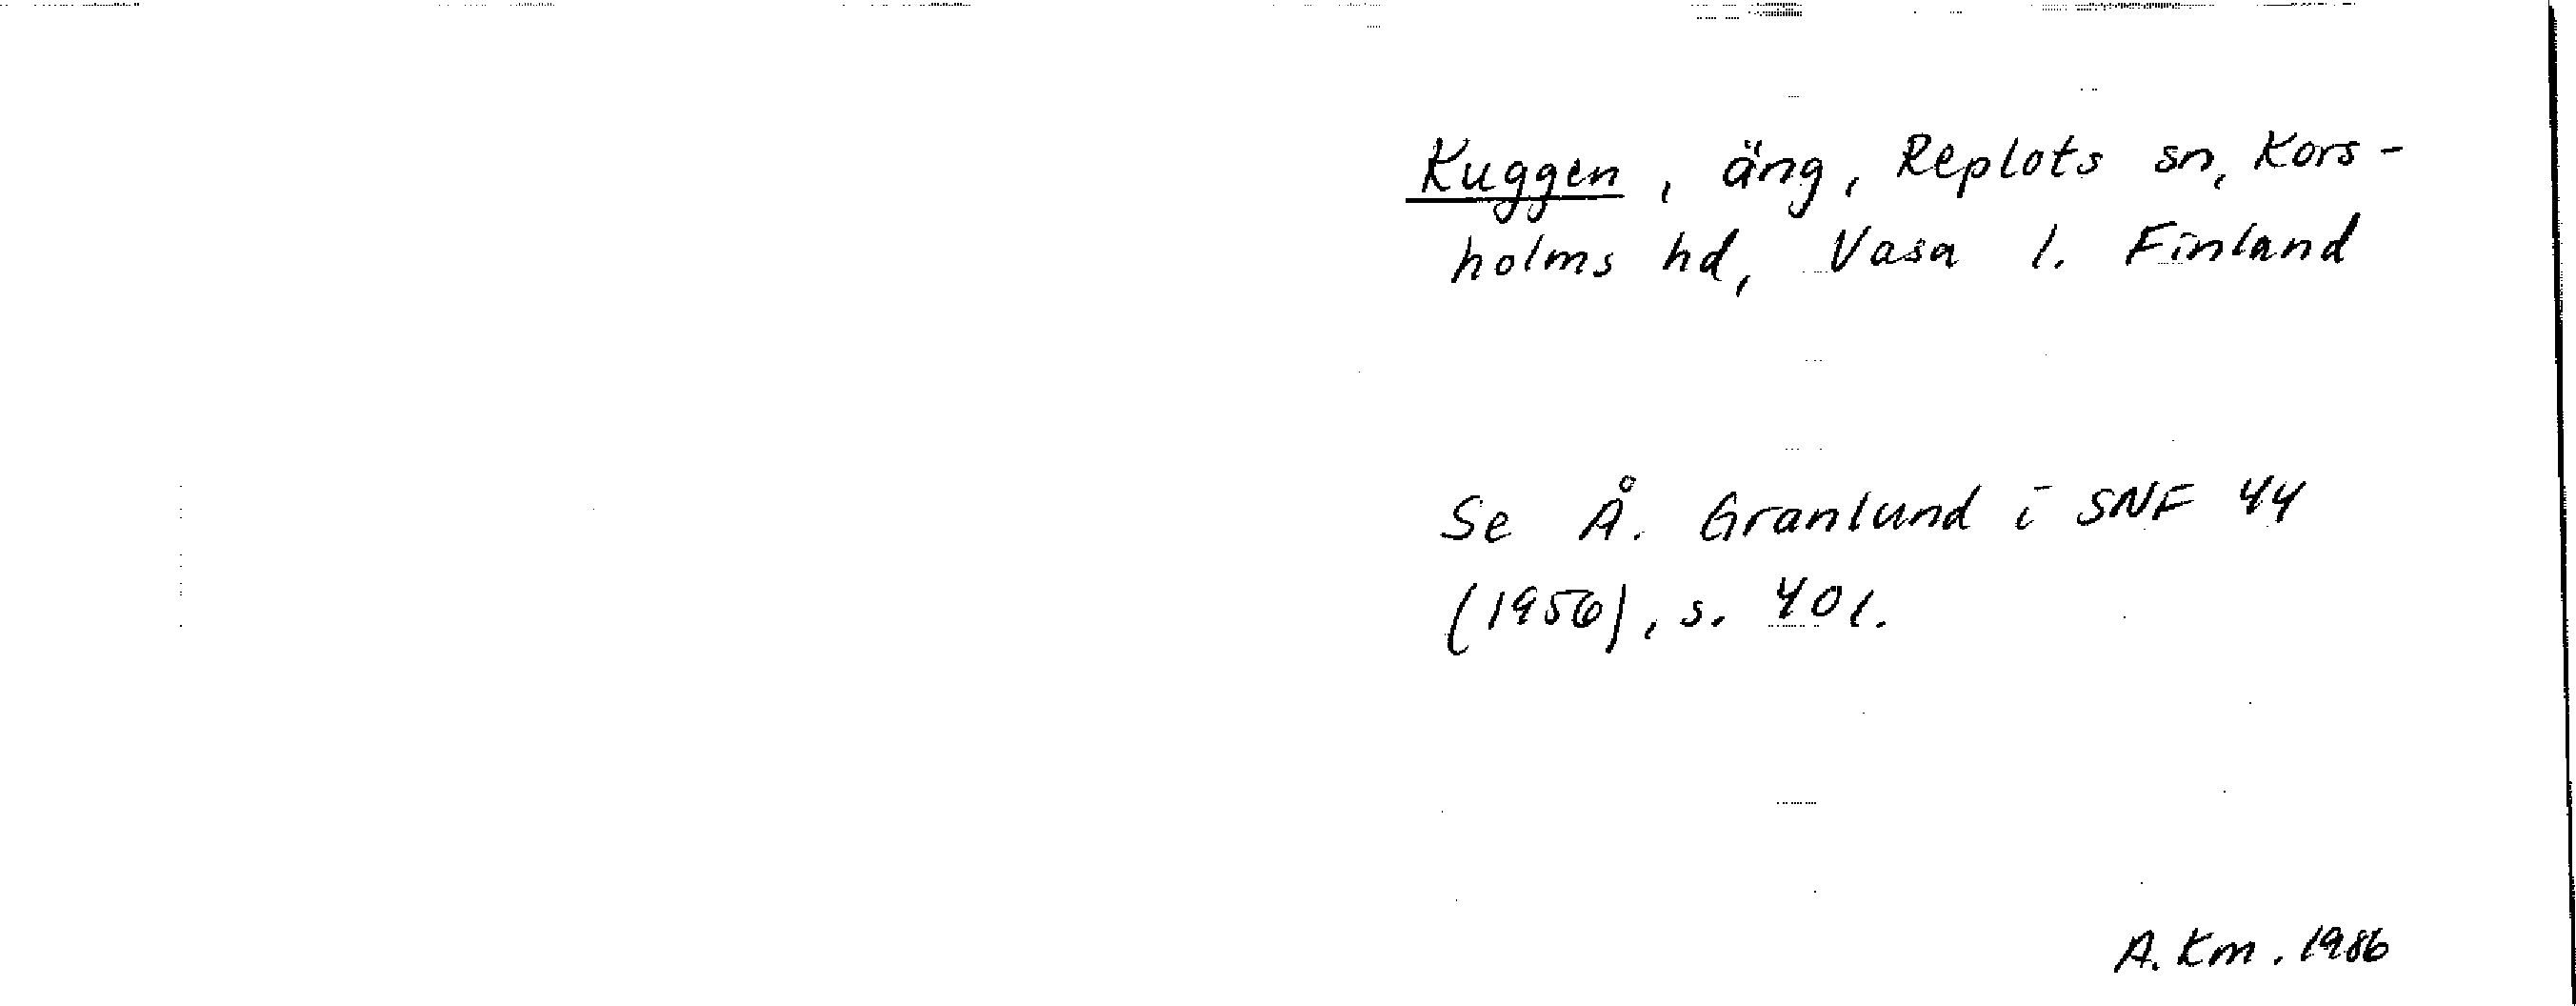 Kuggen, äng, Replots sn, Kors-
holms hd, Vasa l. Finland
Se Å. Granlund i SNF 44
(1956), s. 401.
A. Km. 1986